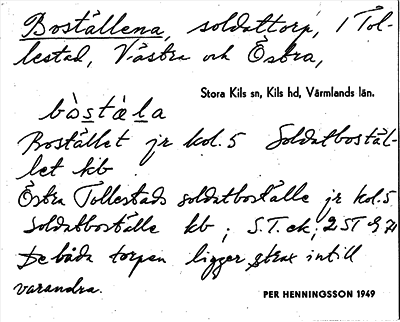 Boställena, soldattorp, i Tol-
lestad, Västra och Östra,
Stora Kils sn, Kils hd, Värmlands län.
bòstäla
Bostället jr kol. 5 Soldatbostäl-
let kb
Östra Tollestads soldatboställe jr kol. 5
Soldatboställe kb ; S.T. ek ; 2 ST
De båda torpen ligger strax intill
varandra.
PER HENNINGSSON 1949